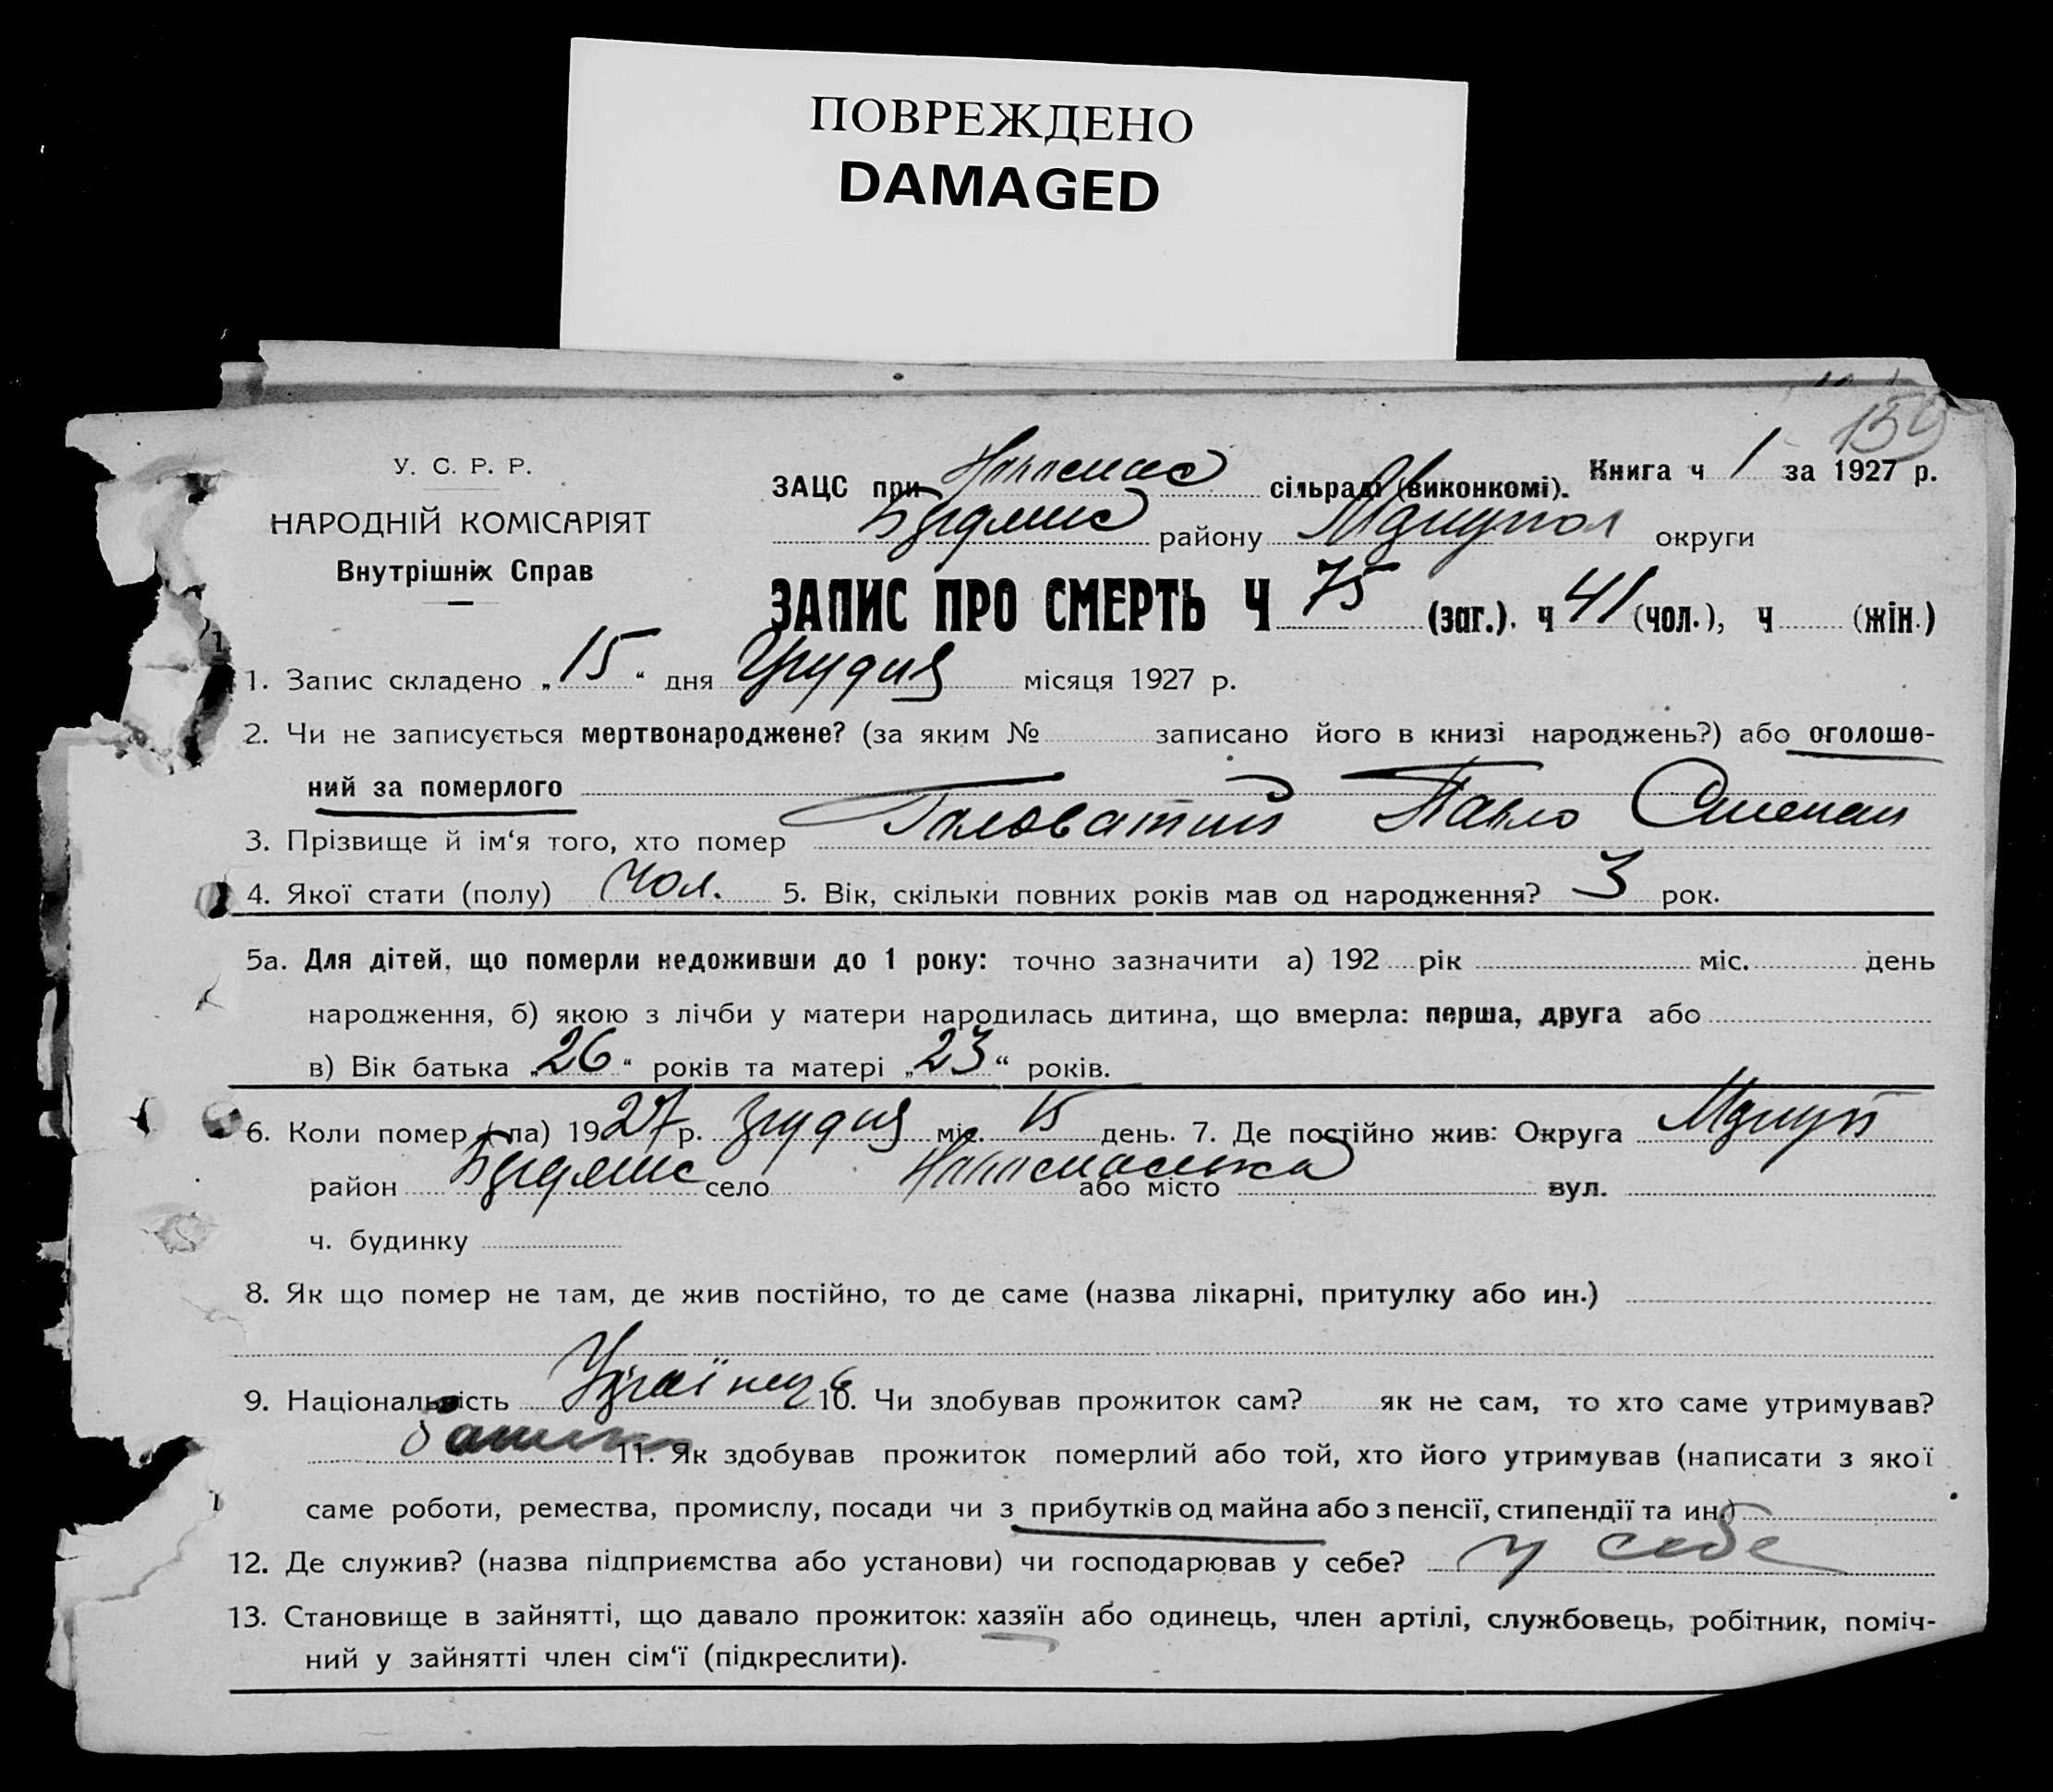 ПОВРЕЖДЕНО
DAMAGED
159
У. С. Р. Р.
НАРОДНІЙ КОМІСАРІЯТ
Внутрішніх Справ
ЗАЦС при сільраді (виконкомі). Книга ч 1 за 1927 р.
району округи
ЗАПИС ПРО СМЕРТЬ Ч 75 (заг.). ч 41 (чол.), ч (жін.)
1. Запис складено „15“ дня Грудня місяця 1927 р.
2. Чи не записується мертвонароджене? (за яким № записано його в книзі народжень?) або оголоше-
ний за померлого
3. Прізвище й ім‘я того, хто помер Головатий Павло Степан
4. Якої стати (полу) Чол. 5. Вік, скільки повних років мав од народження? 3 рок.
5а. Для дітей, що померли недоживши до 1 року: точно зазначити а) 192 рік міс. день
народження, б) якою з лічби у матери народилась дитина, що вмерла: перша, друга або
в) Вік батька „26“ років та матері „23“ років.
6. Коли помер (-ла) 1927 р. грудня міс. 15 день. 7. Де постійно жив: Округа Маріуп
район село або місто вул.
ч. будинку
8. Як що помер не там, де жив постійно, то де саме (назва лікарні, притулку або ин.)
9. Національність Українець 10. Чи здобував прожиток сам? як не сам, то хто саме утримував?
батько 11. Як здобував прожиток померлий або той, хто його утримував (написати з якої
саме роботи, ремества, промислу, посади чи з прибутків од майна або з пенсії, стипендії та ин.)
12. Де служив? (назва підприємства або установи) чи господарював у себе? у себе
13. Становище в зайнятті, що давало прожиток: хазяїн або одинець, член артілі, службовець, робітник, поміч-
ний у зайнятті член сім‘ї (підкреслити).